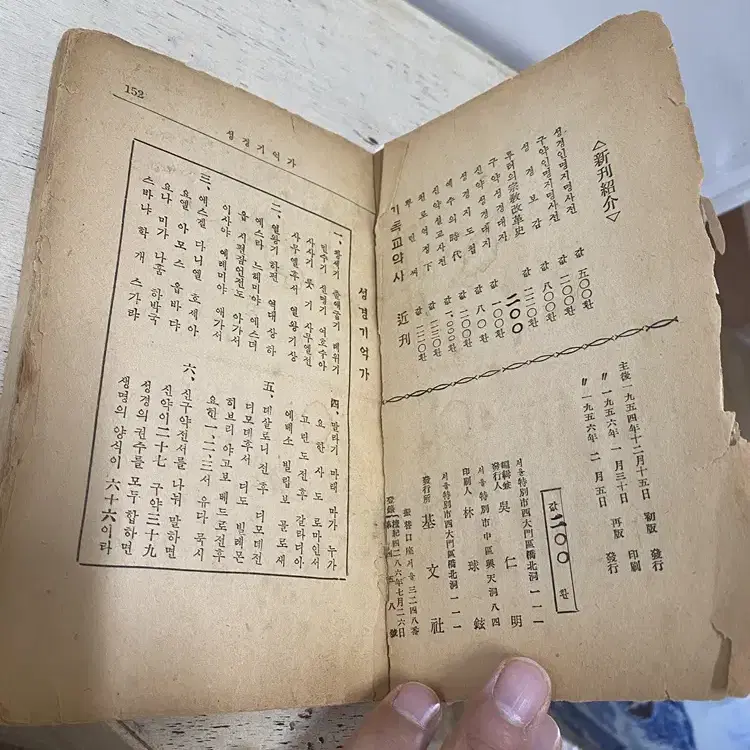 152
성경기억가
성경기억가
一、창세기 출애굽기 레위기
민수기 신명기 여호수아
사사기 룻기 사무엘전
사무엘후서 열왕기상
二、열왕기하전 역대상하
에스라 느헤미야 에스더
욥 시편잠언전도 아가서
이사야 예레미야 애가서
三、에스겔 다니엘 호세아
요엘 아모스 옵바댜
요나 미가 나훔 하박국
스바냐 학개 스가랴
四、말라기 마태 마가 누가
요한 사도 로마인서
고린도전후 갈라디아
에베소 빌립보 골로새
五、데살로니전후 디모데전
디모데후서 디도 빌레몬
히브리 야고보 베드로전후
요한一、二、三서 유다 묵시
六、신구약전서를 나눠 말하면
신약이二十七 구약三十九
성경의 권수를 모두 합하면
생명의 양식이 六十六이라
△新刊紹介▽
성경인명지명사전 값 五〇〇환
구약인명지명사전 값 二〇〇환
성경보감 값 八〇〇환
루터의宗敎改革史 값 二二〇환
구약성경대지 二〇〇
신약성경대지 값 一〇〇환
성경지도첩 값 八〇환
예수의時代 값 二〇〇환
신약설교사전 값 一、〇〇〇환
천로역정 下 값 二〇〇환
값 二二〇환
기독교약사 近刊
主後一九五四年十二月十五日 初版 發行
〃 一九五六年 一月三十日 再版 印刷
〃 一九五六年 二月五日 發行
값 二〇〇 환
서울特別市西大門區橋北洞 一一一
編輯兼發行人 吳仁明
서울特別市中區興天洞 八四
印刷人 林球鉉
서울特別市西大門區橋北洞 一一一
發行所 基文社
振替口座서울 三二四八番
登錄檀紀四二八六年七月二六日
第四五八號